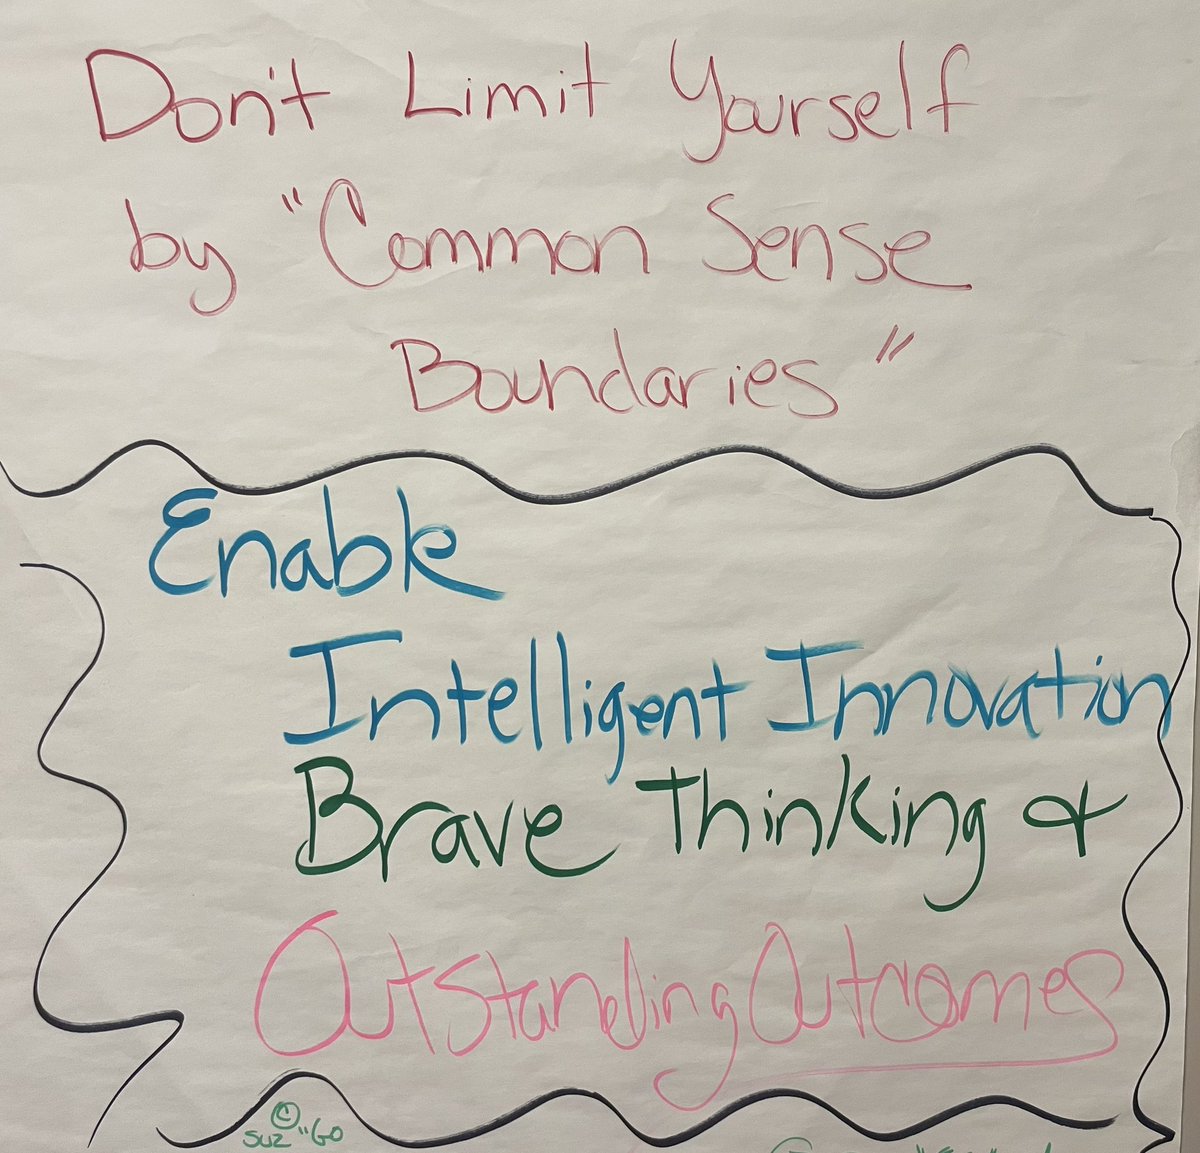 Don't Limit Yourself
by "Common Sense
Boundaries"
Enable
Intelligent Innovation
Brave Thinking &
Outstanding Outcomes
©
suz "Go